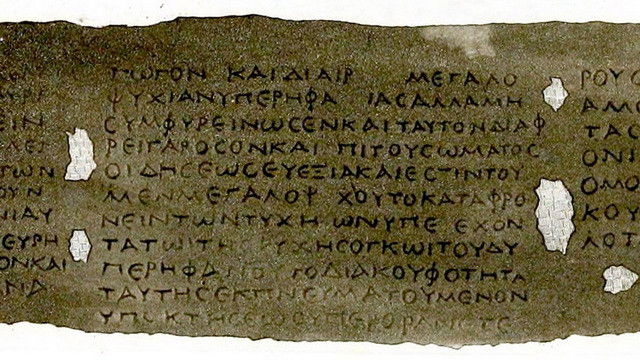 ΕΙΝ
ΤΩΝ
ΟΥΝ
ΝΙΑΥ
ΕΥΡΗ
ΟΝΚΑΙ
ΠΩΓΟΝ ΚΑΙΔΙΑΙΡ ΜΕΓΑΛΟ
ΨΥΧΙΑΝΥΠΕΡΗΦΑ ΙΑCΑΛΛΑΜΗ
CΥΜΦΥΡΕΙΝΩCΕΝΚΑΙΤΑΥΤΟΝΔΙΑΦ
ΡΕΙΓΑΡΟCΟΝΚΑΙ ΠΙΤΟΥCΩΜΑΤΟC
ΟΙΔΗCΕΩCΕΥΕΞΙΑΚΑΙΕCΤΙΝΤΟΥ
ΜΕΝΜΕΓΑΛΟΨ ΧΟΥΤΟΚΑΤΑΦΡΟ
ΝΕΙΝΤΩΝΤΥΧΗ ΩΝΥΠΕ ΕΧΟΝ
ΤΑΤΩΙΤΗC ΥΧΗCΟΓΚΩΙΤΟΥΔΥ
ΠΕΡΗΦΑ ΟΥ ΤΟΔΙΑΚΟΥΦΟΤΗΤΑ
ΤΑΥΤΗCΕΚΠΝΕΥΜΑΤΟΥΜΕΝΟΝ
ΥΠΟΚΤΗCΕΩC ΥΠΕΡΟΡΑΝ
ΡΟΥ
ΑΜ
ΤΑC
ΟΝΙ
ΟΜΟ
ΚΟΥ
ΛΟΤ